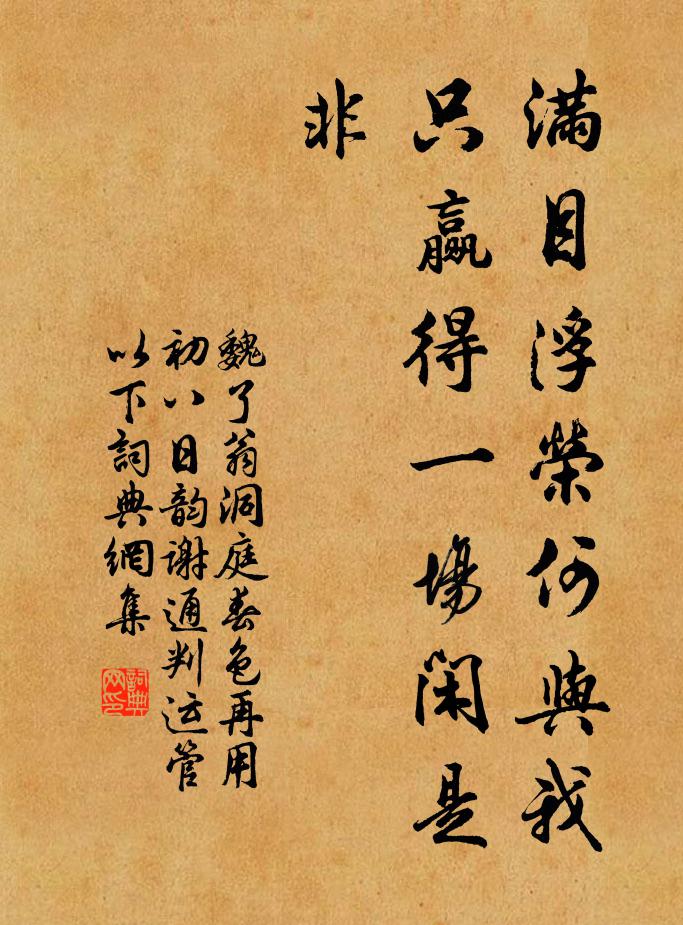 滿目浮榮何與我
只贏得一場閑是
非
魏了翁洞庭春色再用
初八日韵謝通判运管
以下詞典網集
詞典
网印